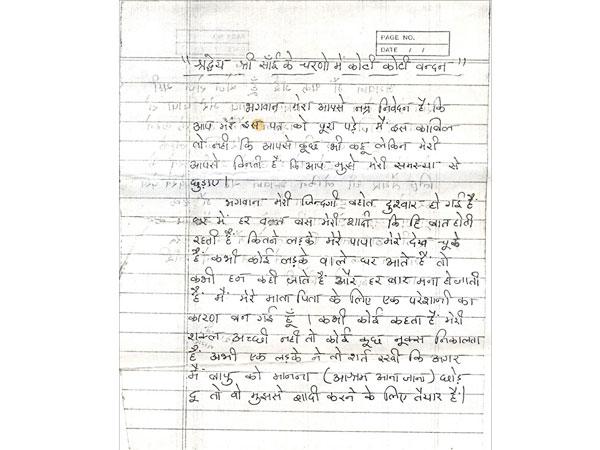 PAGE NO.
DATE / /
"श्रद्धेय श्री साँई के चरणो में कोटी कोटी वन्दन"
भगवान मेरा आपसे नम्र निवेदन है कि
आप मेरे इस पत्र को पूरा पड़े, मैं इस काबिल
तो नही कि आपसे कुछ भी कहू लेकिन मेरी
आपसे विनती है कि आप मुझे मेरी समस्या से
छुड़ाए।
भगवान मेरी जिन्दगी बहोत दुश्वार हो गई है
घर में हर वक्त बस मेरी शादी कि हि बात होती
रहती है कितने लड़के मेरे पापा मेरे देख चूके
है कभी कोई लड़के वाले घर आते है तो
कभी हम कही जाते है और हर बार मना हो जाती
है मैं मेरे माता पिता के लिए एक परेशानी का
कारण बन गई हूँ। कभी कोई कहता है मेरी
शक्ल अच्छी नही तो कोई कूछ नूक्स निकालता
है अभी एक लड़के ने तो शर्त रखी कि अगर
मैं बापु को मानना (आश्रम आना जाना) छोड़
दू तो वो मुझसे शादी करने के लिए तैयार है।